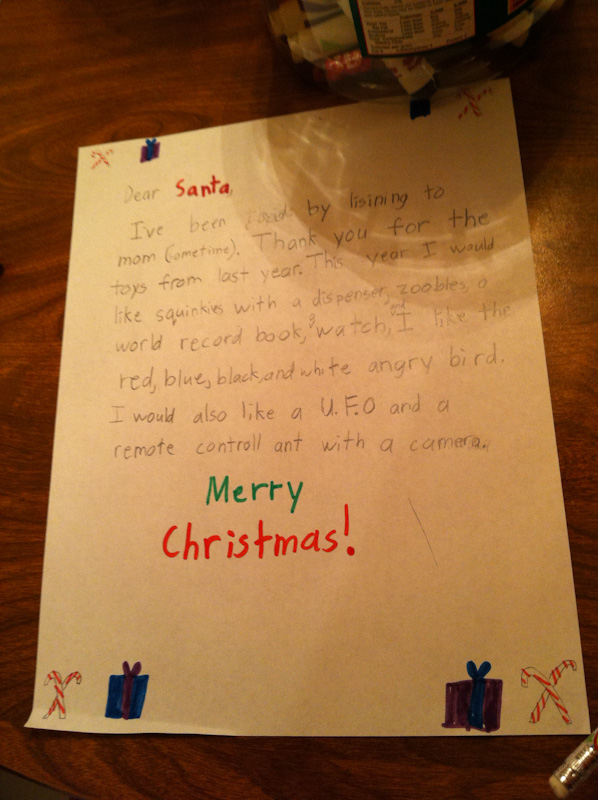 Dear Santa,
I've been by lisining to
mom (sometime). Thank you for the
toys from last year. This year I would
like squinkies with a dispenser, zoobles, a
world record book, a watch, and I like the
red, blue, black, and white angry bird.
I would also like a U.F.O and a
remote controll ant with a camera.
Merry
Christmas!